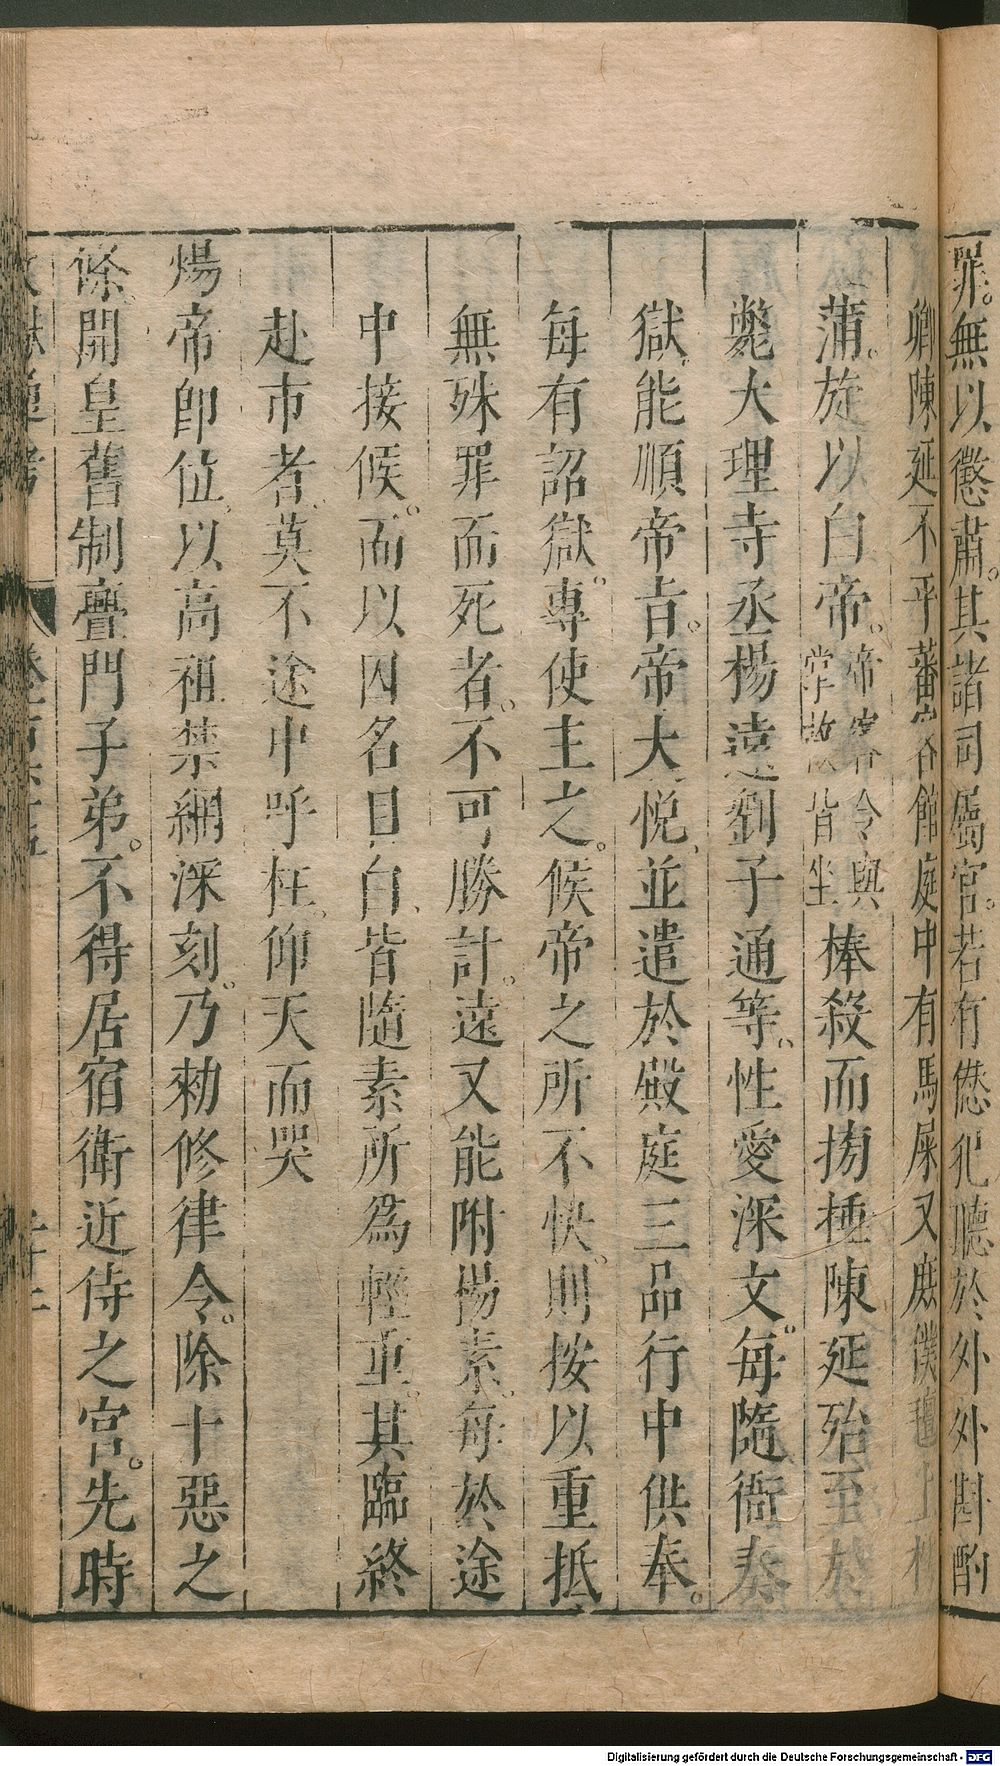 罪。無以懲肅。其諸司屬官。若有愆犯聽於外外斟酌
卿陳延不平蕃客館庭中有馬屎又庶僕氊上樗
蒲。旋以白帝。帝客令與掌故皆坐棒殺而搒棰陳延殆至於
斃大理寺丞楊遠劉子通等性愛深文。每隨衙奏
獄能順帝旨。帝大悅並遣於殿庭三品行中供奉。
每有詔獄。專使主之。候帝之所不快。則按以重抵
無殊罪而死者。不可勝計。遠又能附楊素。每於途
中接候。而以囚名目白皆隨素所爲輕重。其臨終
赴市者莫不途中呼枉。仰天而哭
煬帝卽位以高祖禁網深刻。乃勑修律令。除十惡之
條開皇舊制釁門子弟。不得居宿衛近侍之官。先時
Digitalisierung gefördert durch die Deutsche Forschungsgemeinschaft - DFG